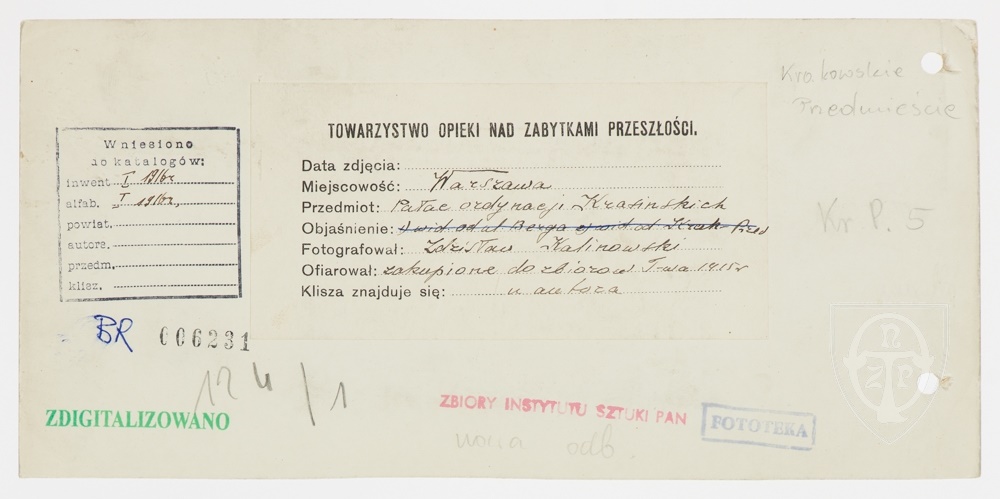 Krakowskie
Przedmieście
TOWARZYSTWO OPIEKI NAD ZABYTKAMI PRZESZŁOŚCI.
Data zdjęcia:
Miejscowość: Warszawa
Przedmiot: Pałac ordynacji Krasińskich
Objaśnienie: od ul Berga od ul Krak Przed
Fotografował: Zdzisław Kalinowski
Ofiarował: zakupione do zbiorów T-wa 1915 r
Klisza znajduje się: u autora
Wniesiono
do katalogów:
inwent. I 1916 r.
alfab. I 1916 r.
powiat.
autors.
przedm.
klisz.
Kr P. 5
BR 006231
124/1
ZDIGITALIZOWANO
ZBIORY INSTYTUTU SZTUKI PAN
FOTOTEKA
odb.
TONZP